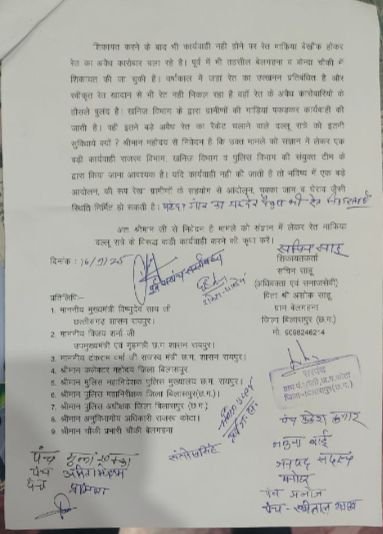 शिकायत करने के बाद भी कार्यवाही नही होने पर रेत माफिया बेखौफ होकर
रेत का अवैध कारोबार चला रहे है। पूर्व में भी तहसील बेलगहना व केन्दा चौकी में
शिकायत की जा चुकी है। वर्षाकाल में जहां रेत का उत्खनन प्रतिबंधित है और
स्वीकृत रेत खदान से भी रेत नही निकल रहा है वहीं रेत के अवैध कारोबारियो के
हौसले बुलंद है। खनिज विभाग के द्वारा ग्रामीणों की गाड़िया पकड़कर कार्यवाही की
जाती है। वही इतने बड़े अवैध रेत का रैकेट चलाने वाले दल्लू रात्रे को इतनी
सुविधाये क्यों ? श्रीमान महोदय से निवेदन है कि उक्त मामले को संज्ञान मे लेकर एक
बड़ी कार्यवाही राजस्व विभाग, खनिज विभाग व पुलिस विभाग की संयुक्त टीम के
द्वारा किया जाना आवश्यक है। यदि कार्यवाही नही की जाती है तो भविष्य में एक बड़े
आंदोलन, की रूप रेखा ग्रामीणों के सहयोग से आंदोलन, चक्का जाम व घेराव जैसी
स्थिति निर्मित हो सकती है।
अतः श्रीमान जी से निवेदन है मामले को संज्ञान में लेकर रेत माफिया
दल्लू रात्रे के विरूद्ध बड़ी कार्यवाही करने की कृपा करें।
दिनांक : 16/7/25
सचिन साहू
शिकायतकर्ता
सचिन साहू
(अधिवक्ता एवं समाजसेवी)
पिता श्री अशोक साहू
ग्राम बेलगहना
जिला बिलासपुर (छ.ग.)
मो. 9098246214
प्रतिलिपि:-
1. माननीय मुख्यमंत्री विष्णुदेव साय जी
छत्तीसगढ़ शासन रायपुर।
2. माननीय विजय शर्मा जी
उपमुख्यमंत्री एवं गृहमंत्री छ.ग शासन रायपुर।
3. माननीय टंकराम वर्मा जी राजस्व मंत्री छ.ग. शासन रायपुर।
4. श्रीमान कलेक्टर महोदय जिला बिलासपुर
5. श्रीमान पुलिस महानिदेशक पुलिस मुख्यालय छ.ग. रायपुर।
6. श्रीमान पुलिस महानिरीक्षक जिला बिलासपुर(छ.ग.)
7. श्रीमान पुलिस अधीक्षक जिला बिलासपुर (छ.ग.)
8. श्रीमान अनुविभागीय अधिकारी राजस्व कोटा।
9. श्रीमान चौकी प्रभारी चौकी बेलगहना
सरपंच
पंच
पंच
पंच
पंच
जनपद सदस्य
मनोज
पंच
पंच -